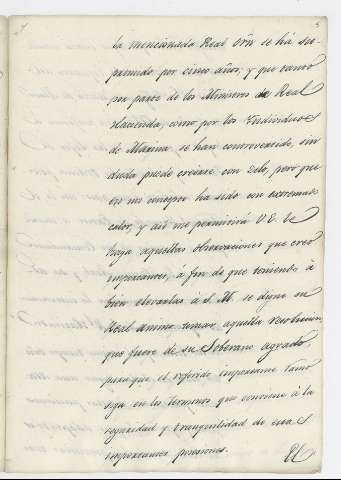 la mencionada Real Orn se há su-
primido por cinco años, y que tanto
por parte de los Ministros de Real
Hacienda, como por los Yndividuos
de Marina se han controvertido, sin
duda puede creerse con zelo, pero que
en mi concepto ha sido con extremado
calor, y asi me permitirá V.E. le
haga aquellas observaciones que creo
importantes, á fin de que teniendo á
bien elevarlas á S. M. se digne su
Real animo tomar aquella resolucion,
que fuere de su Soberano agrado,
para que el referido importante ramo
siga en los terminos que conviene á la
seguridad y tranquilidad de estas
importantes posesiones.
El